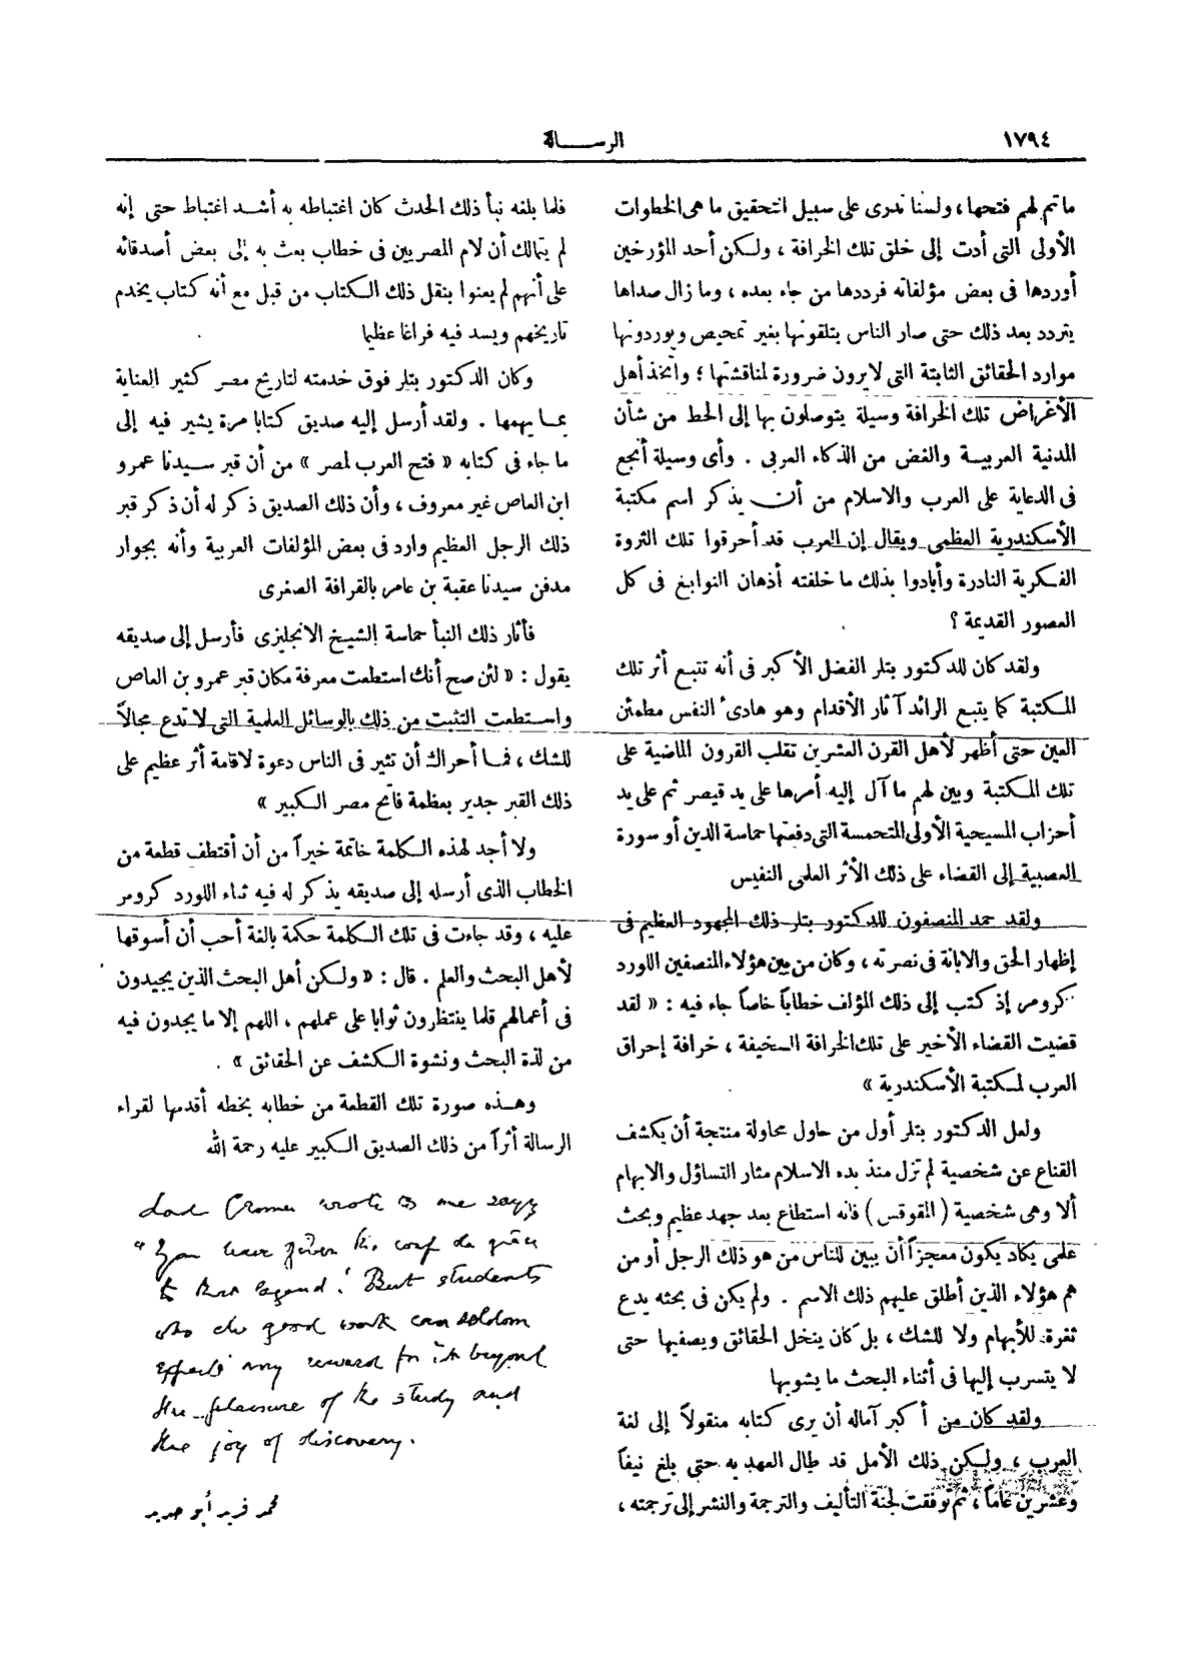 ١٧٩٤
الرسالة
ما تم لهم فتحها، ولسنا ندرى على سبيل التحقيق ما هى الخطوات
الأولى التى أدت إلى خلق تلك الخرافة ، ولكن أحد المؤرخين
أوردها فى بعض مؤلفاته فرددها من جاء بعده ، وما زال صداها
يتردد بعد ذلك حتى صار الناس يتلقونها بغير تمحيص ويوردونها
موارد الحقائق الثابتة التى لا يرون ضرورة لمناقشتها ؛ واتخذ أهل
الأغراض تلك الخرافة وسيلة يتوصلون بها إلى الحط من شأن
المدنية العربية والغض من الذكاء العربى . وأى وسيلة أنجع
فى الدعاية على العرب والاسلام من أن يذكر اسم مكتبة
الأسكندرية العظمى ويقال إن العرب قد أحرقوا تلك الثروة
الفكرية النادرة وأبادوا بذلك ما خلفته أذهان النوابغ فى كل
العصور القديمة ؟
ولقد كان للدكتور بتلر الفضل الأكبر فى أنه تتبع أثر تلك
المكتبة كما يتبع الرائد آثار الأقدام وهو هادىء النفس مطمئن
العين حتى أظهر لأهل القرن العشرين تقلب القرون الماضية على
تلك المكتبة وبين لهم ما آل إليه أمرها على يد قيصر ثم على يد
أحزاب المسيحية الأولى المتحمسة التى دفعتها حماسة الدين أو سورة
العصبية إلى القضاء على ذلك الأثر العلمى النفيس
ولقد حمد المنصفون للدكتور بتلر ذلك المجهود العظيم فى
إظهار الحق والابانة فى نصرته ، وكان من بين هؤلاء المنصفين اللورد
كرومر إذ كتب إلى ذلك المؤلف خطاباً خاصاً جاء فيه : « لقد
قضيت القضاء الأخير على تلك الخرافة السخيفة ، خرافة إحراق
العرب لمكتبة الأسكندرية »
ولعل الدكتور بتلر أول من حاول محاولة منتجة أن يكشف
القناع عن شخصية لم تزل منذ بدء الاسلام مثار التساؤل والابهام
ألا وهى شخصية ( المقوقس ) فانه استطاع بعد جهد عظيم وبحث
علمى يكاد يكون معجزاً أن يبين للناس من هو ذلك الرجل أو من
هم هؤلاء الذين أطلق عليهم ذلك الاسم . ولم يكن فى بحثه يدع
ثغرة للأبهام ولا للشك ، بل كان ينخل الحقائق ويصفيها حتى
لا يتسرب إليها فى أثناء البحث ما يشوبها
ولقد كان من أكبر آماله أن يرى كتابه منقولاً إلى لغة
العرب ، ولكن ذلك الأمل قد طال العهد به حتى بلغ نيفاً
وعشرين عاماً ، ثم توفقت لجنة التأليف والترجمة والنشر إلى ترجمته ،
فلما بلغه نبأ ذلك الحدث كان اغتباطه به أشد اغتباط حتى إنه
لم يتمالك أن لام المصريين فى خطاب بعث به إلى بعض أصدقائه
على أنهم لم يعنوا بنقل ذلك الكتاب من قبل مع أنه كتاب يخدم
تاريخهم ويسد فيه فراغا عظيما
وكان الدكتور بتلر فوق خدمته لتاريخ مصر كثير العناية
بما يهمها . ولقد أرسل إليه صديق كتابا مرة يشير فيه إلى
ما جاء فى كتابه « فتح العرب لمصر » من أن قبر سيدنا عمرو
ابن العاص غير معروف ، وأن ذلك الصديق ذكر له أن ذكر قبر
ذلك الرجل العظيم وارد فى بعض المؤلفات العربية وأنه بجوار
مدفن سيدنا عقبة بن عامر بالقرافة الصغرى
فأثار ذلك النبأ حماسة الشيخ الانجليزى فأرسل إلى صديقه
يقول : « لئن صح أنك استطعت معرفة مكان قبر عمرو بن العاص
واستطعت التثبت من ذلك بالوسائل العلمية التى لا تدع مجالاً
للشك ، فما أحراك أن تثير فى الناس دعوة لاقامة أثر عظيم على
ذلك القبر جدير بعظمة فاتح مصر الكبير »
ولا أجد لهذه الكلمة خاتمة خيراً من أن أقتطف قطعة من
الخطاب الذى أرسله إلى صديقه يذكر له فيه ثناء اللورد كرومر
عليه ، وقد جاءت فى تلك الكلمة حكمة بالغة أحب أن أسوقها
لأهل البحث والعلم . قال : « ولكن أهل البحث الذين يجيدون
فى أعمالهم قلما ينتظرون ثوابا على عملهم ، اللهم إلا ما يجدون فيه
من لذة البحث ونشوة الكشف عن الحقائق » .
وهذه صورة تلك القطعة من خطابه بخطه أقدمها لقراء
الرسالة أثراً من ذلك الصديق الكبير عليه رحمة الله
Lord Cromer wrote to me saying
"You have given the coup de grâce
to that legend! But students
who do good work can seldom
expect any reward for it beyond
the pleasure of the study and
the joy of discovery.
محمد فريد أبو حديد